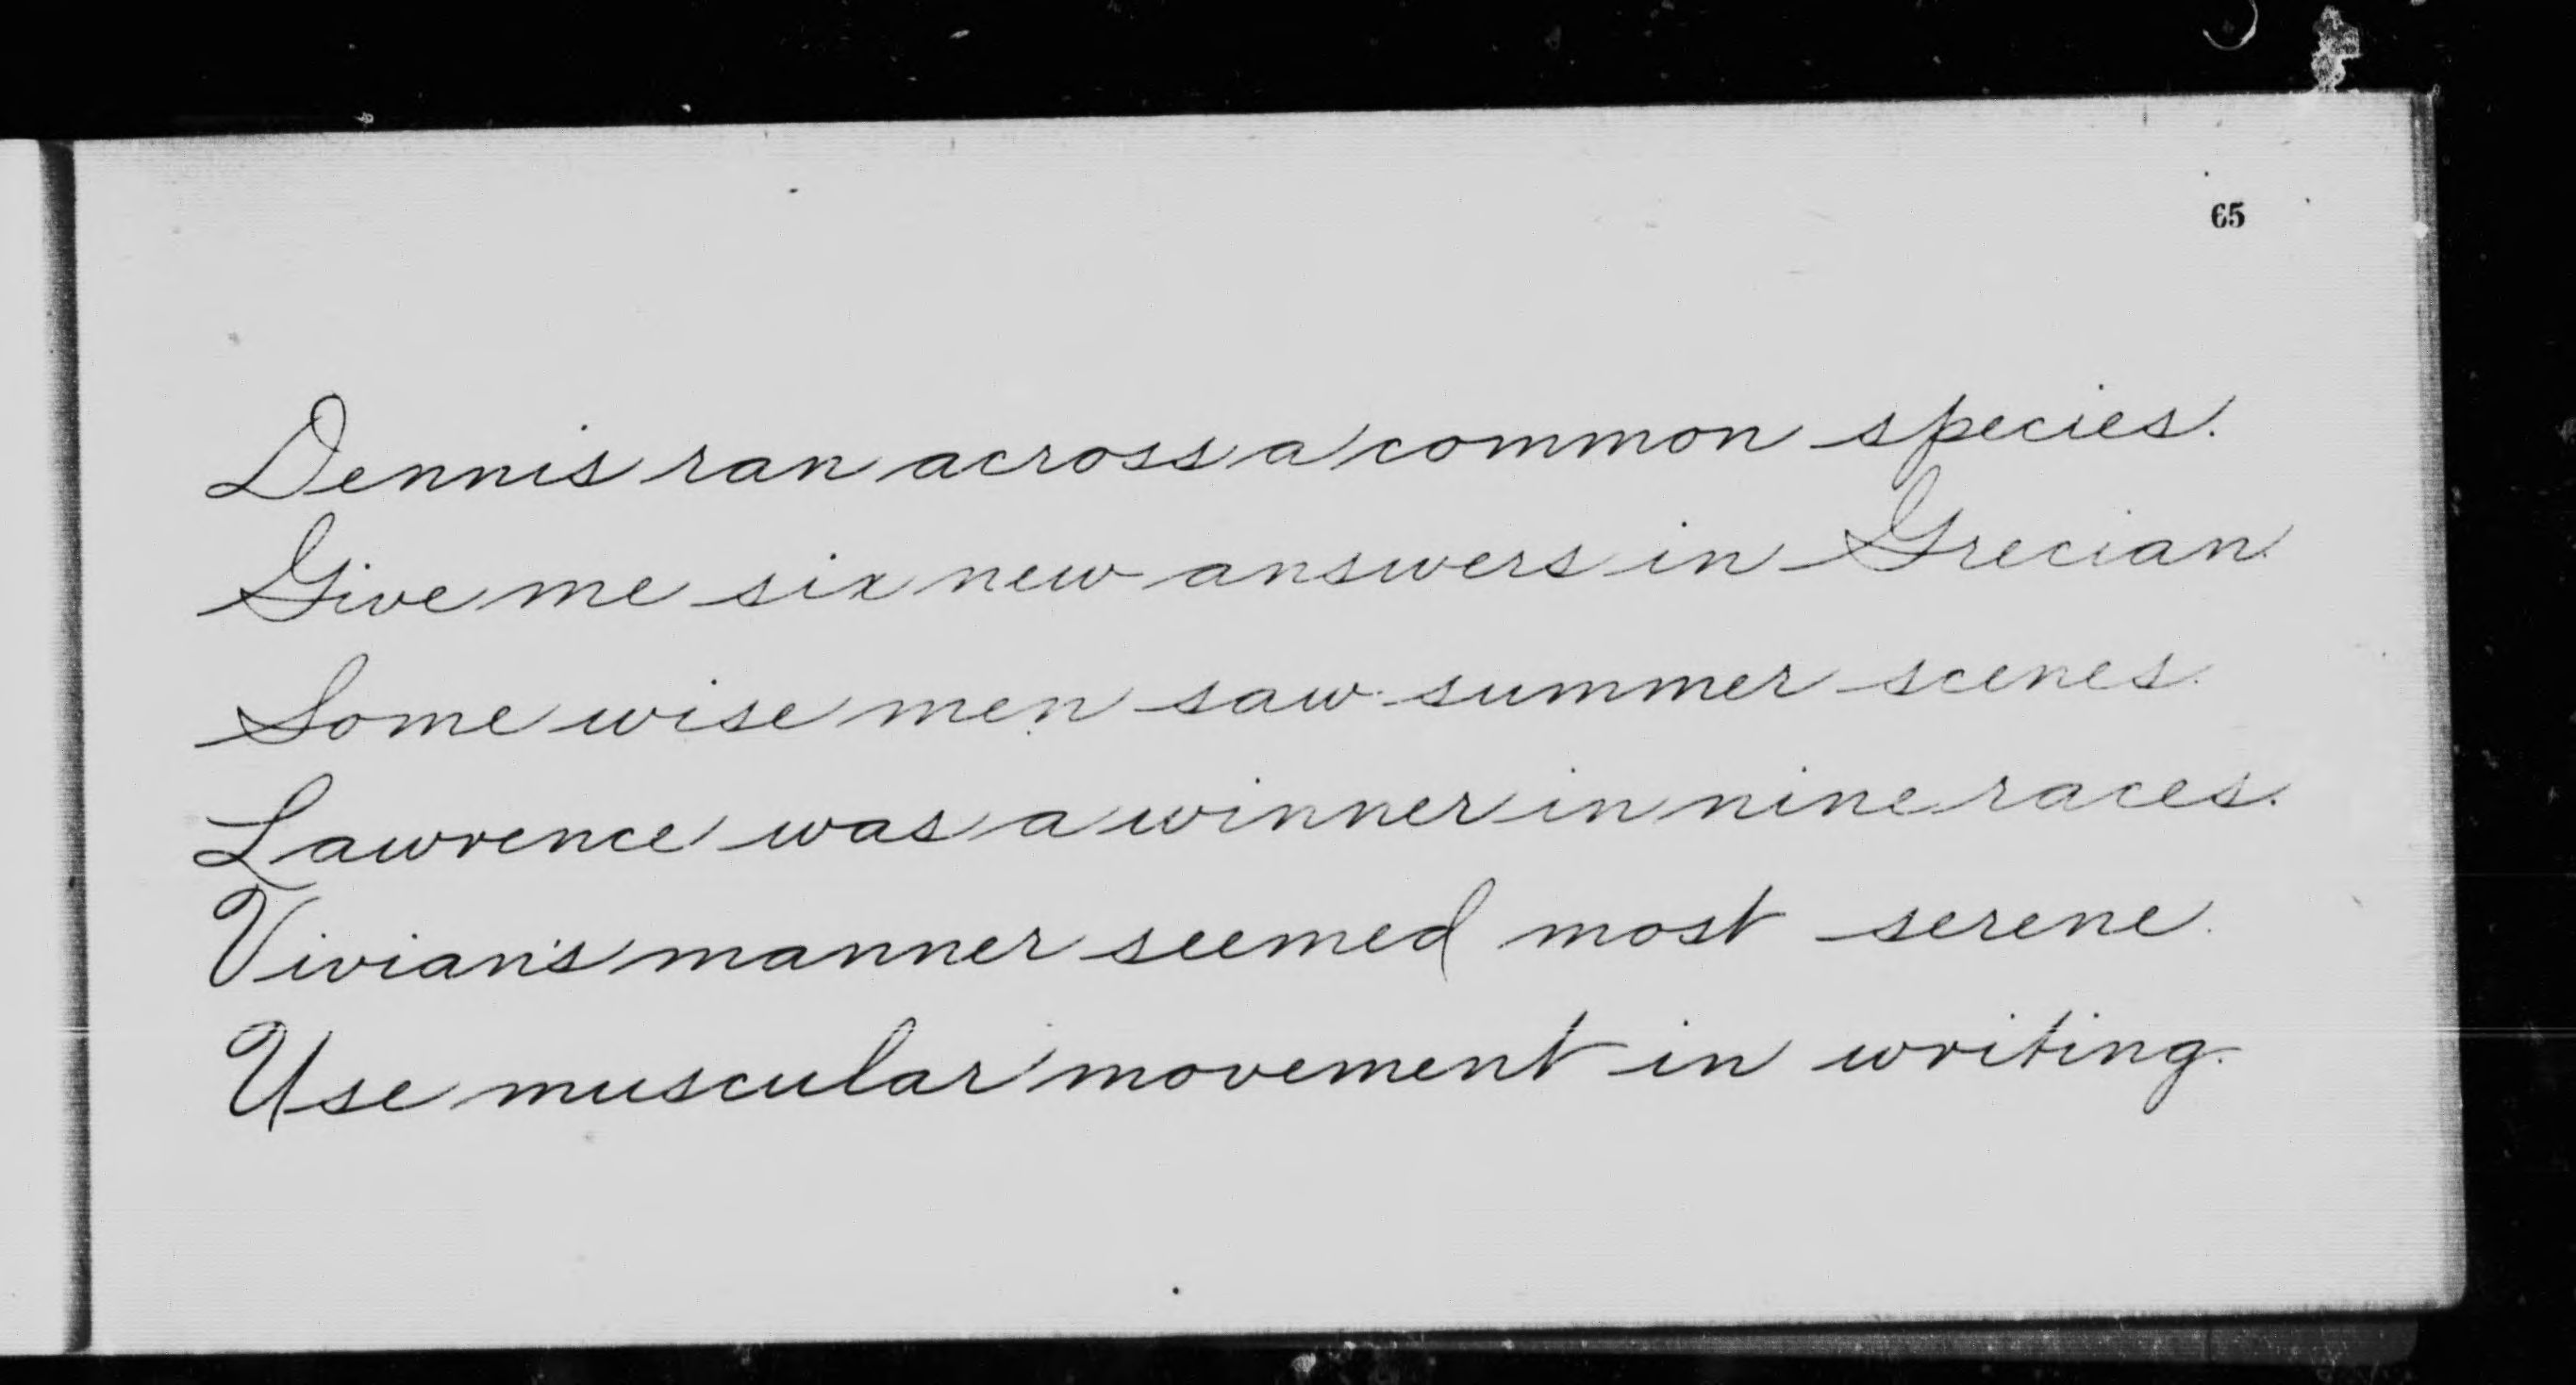 65
Dennis ran across a common species.
Give me six new answers in Grecian.
Some wise men saw summer scenes.
Lawrence was a winner in nine races.
Vivian's manner seemed most serene.
Use muscular movement in writing.